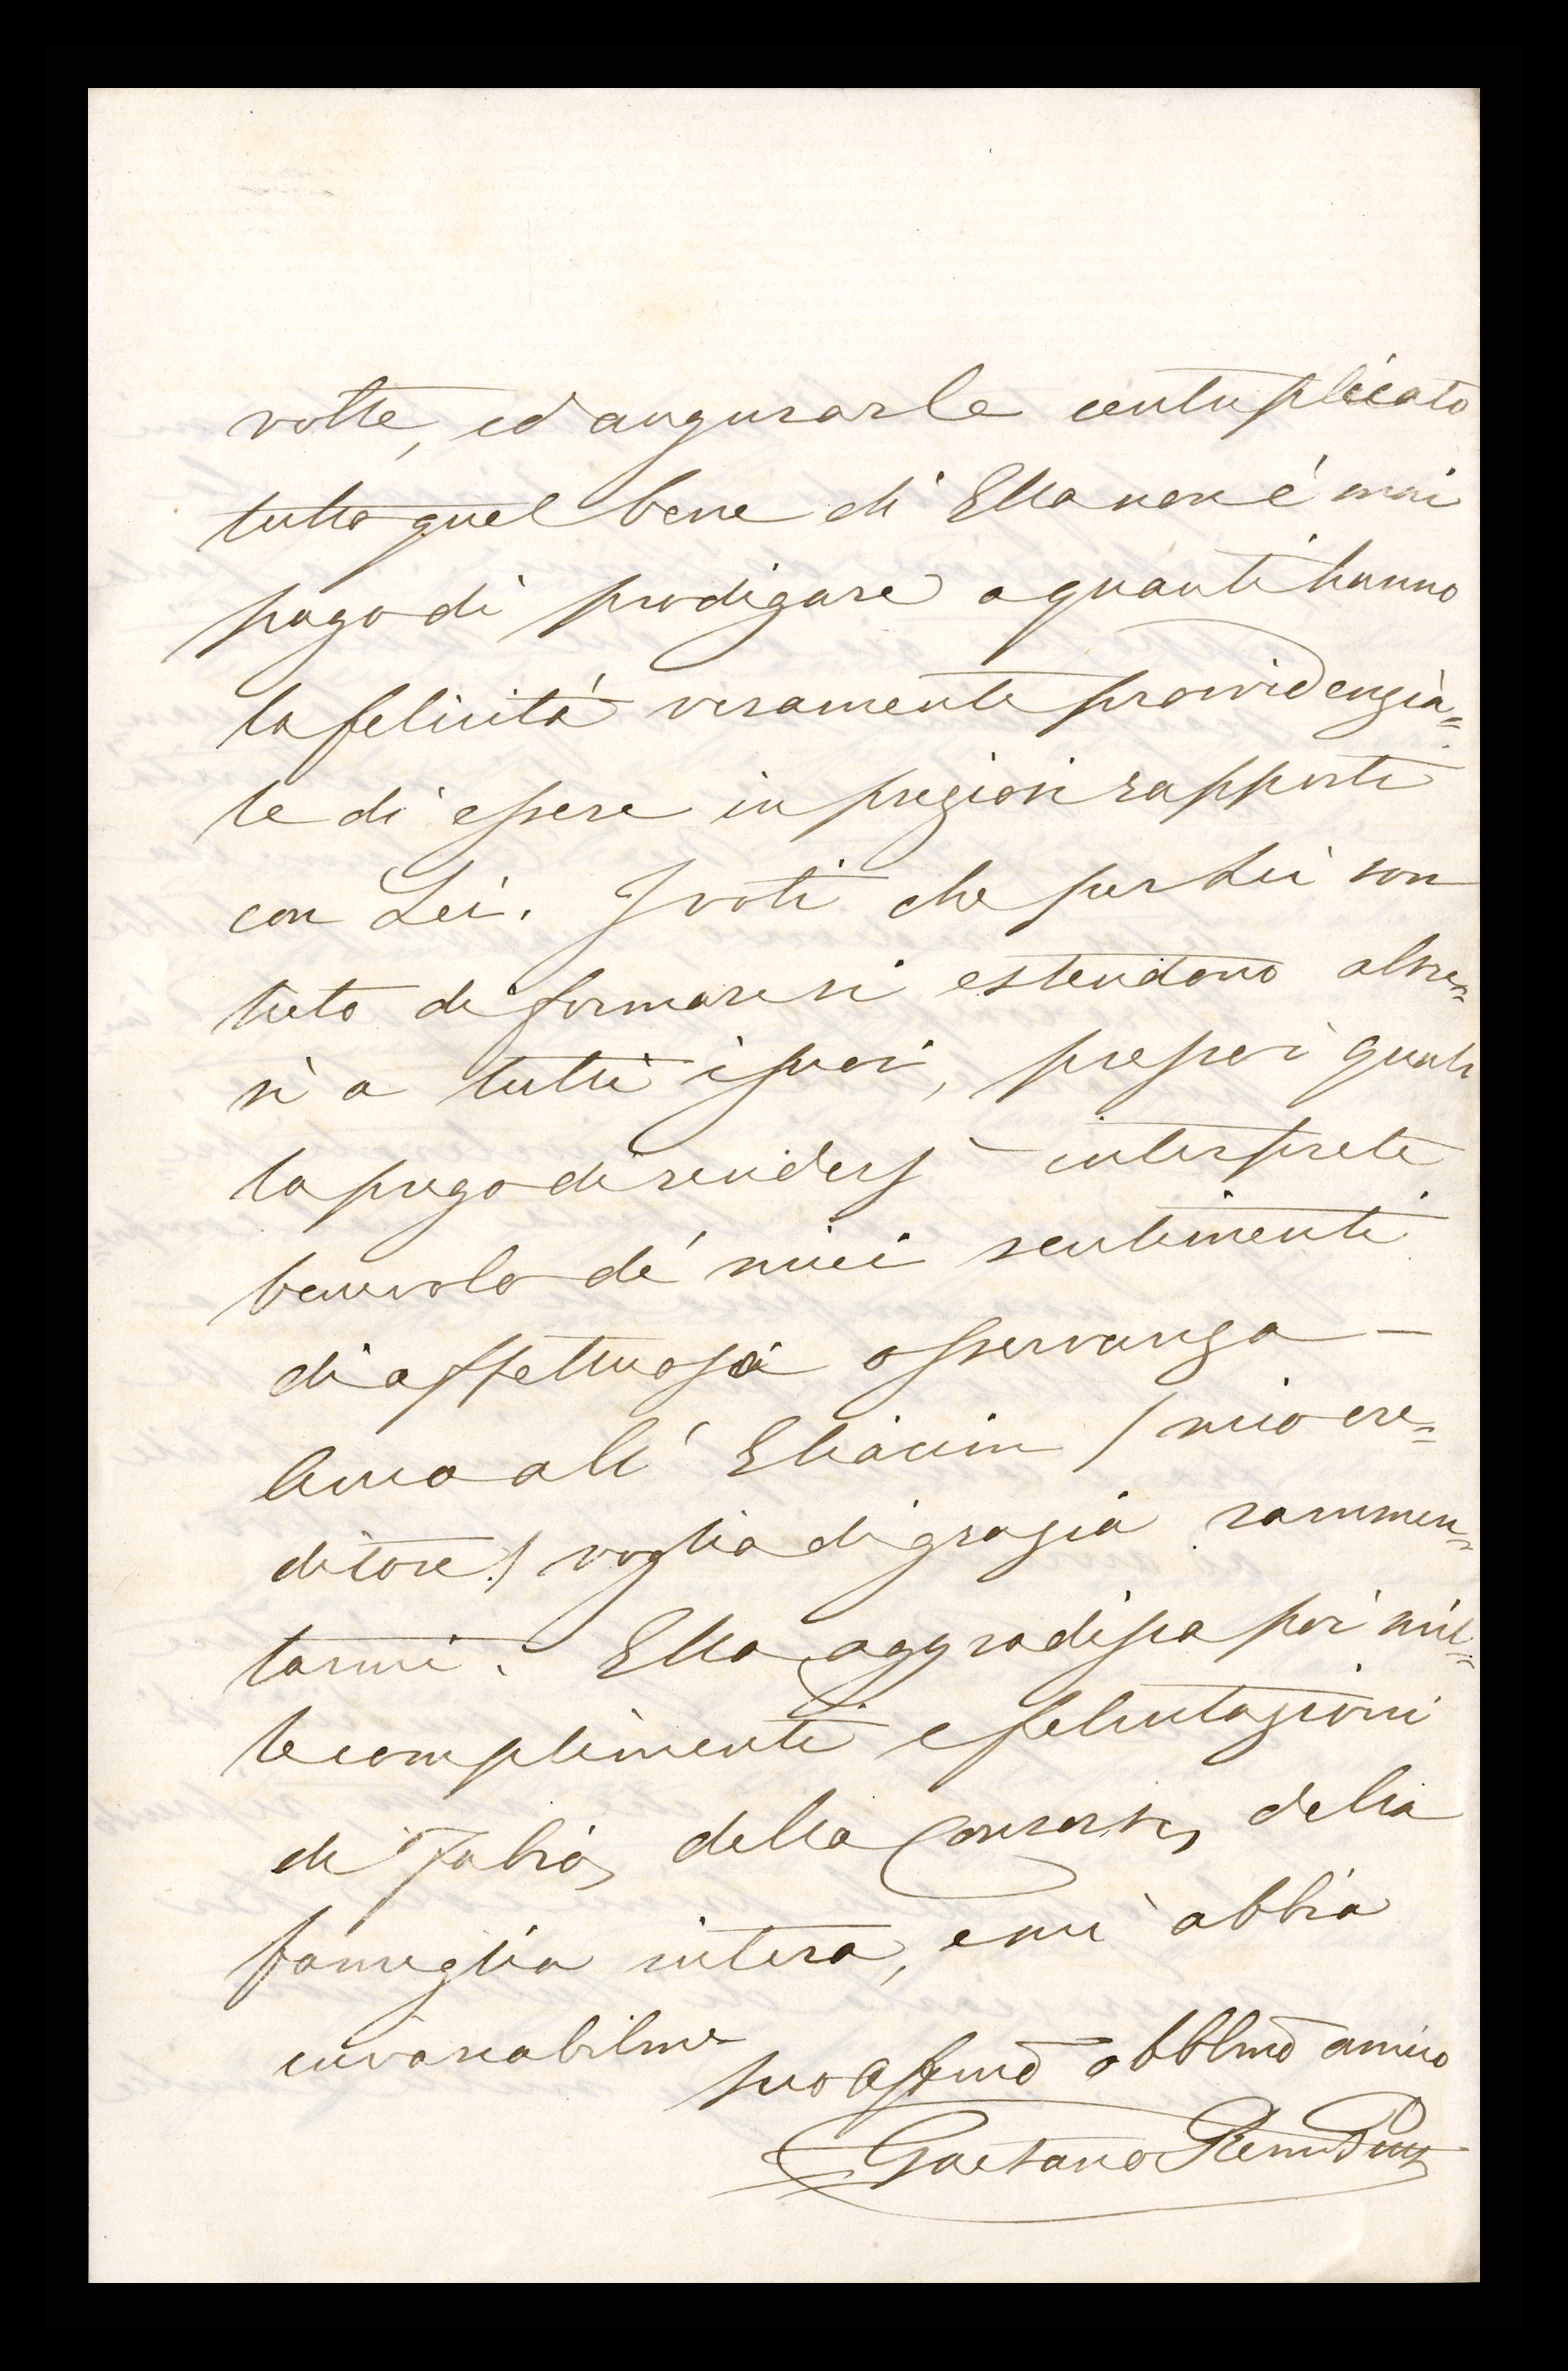 volte, ed augurarle centuplicato
tutto quel bene di Ella non é mai
pago di prodigare a quanti hanno
la felicitá veramente provvidenzia=
le di essere in preziosi rapporti
con Lei. I voti che per Lei son
lieto di formare si estendono altre=
sì a tutti i suoi, presso i quali
la prego di rendersi interprete
benevolo dé miei sentimenti
di affettuosa osservanza —
Anco all' Eliacim / mio cre=
ditore! / voglia di grazia rammen=
tarmi. Ella aggradisca poi mil=
le complimenti e felicitazioni
di Fabio, della Consorte, della
famiglia intera, e mi abbia
invariabilme
suo affmo obblmo amico
Gaetano